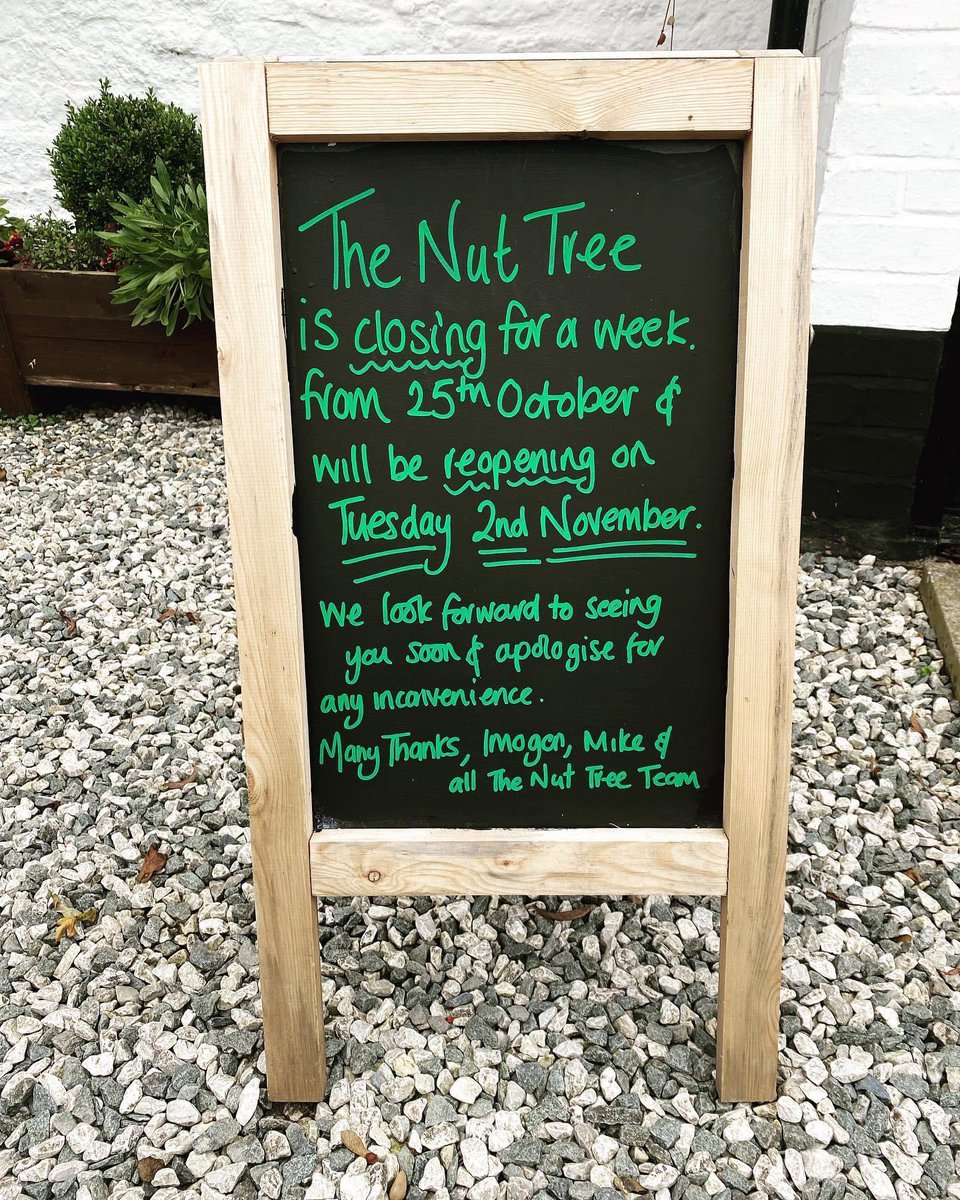 The Nut Tree
is closing for a week.
from 25th October &
will be reopening on
Tuesday 2nd November.
We look forward to seeing
you soon & apologise for
any inconvenience.
Many Thanks, Imogen, Mike &
all The Nut Tree Team